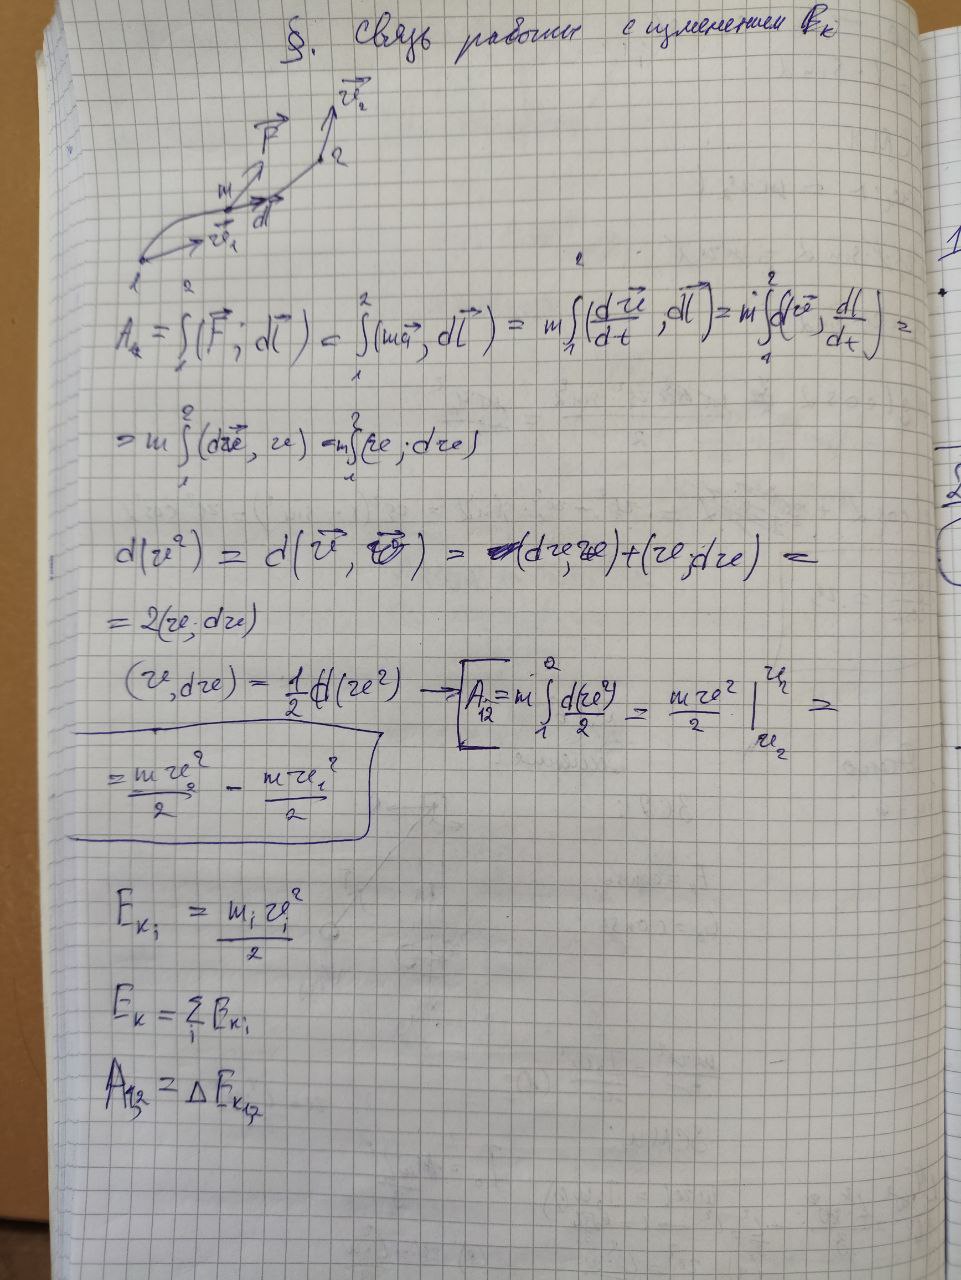 §. Связь работы с изменением Eк
v⃗₂
F⃗
2
m
dl⃗
v⃗₁
1
A₁₂ = ∫₁² (F⃗; dl⃗) = ∫₁² (ma⃗, dl⃗) = m ∫₁² (dv⃗/dt, dl⃗) = m ∫₁² (dv⃗, dl/dt) =
= m ∫₁² (dv⃗, v) = m ∫₁² (v; dv)
d(v²) = d(v⃗, v⃗) = (dv, v) + (v; dv) =
= 2(v; dv)
(v, dv) = 1/2 d(v²) → [A₁₂ = m ∫₁² d(v²)/2 = mv²/2 |v₂ v₂ =
= mv₂²/2 - mv₁²/2
Eкᵢ = mᵢvᵢ²/2
Eк = Σᵢ Eкᵢ
A₁₂ = Δ Eк₁₂